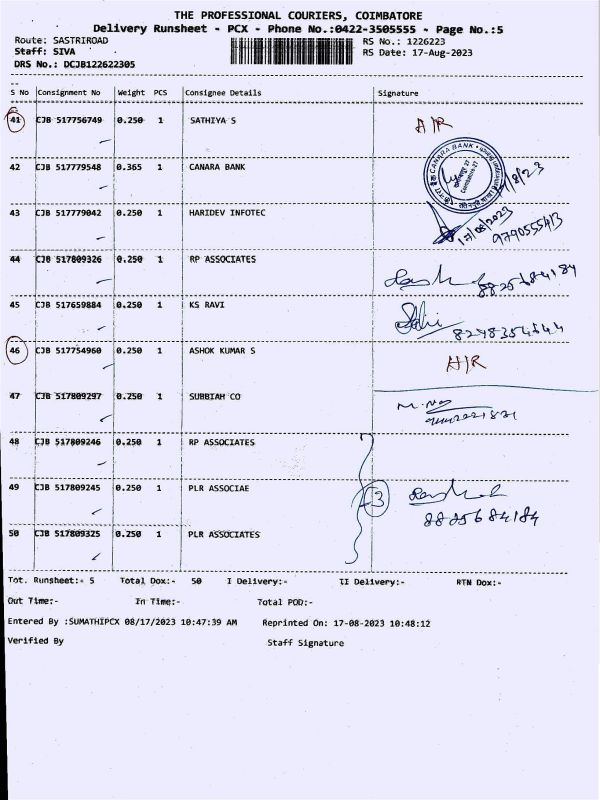 THE PROFESSIONAL COURIERS, COIMBATORE
Delivery Runsheet - PCX - Phone No.:0422-3505555 - Page No.:5
Route: SASTRIROAD RS No.: 1226223
Staff: SIVA RS Date: 17-Aug-2023
DRS No.: DCJB122622305
S No Consignment No Weight PCS Consignee Details Signature
41 CJB 517756749 0.250 1 SATHIYA S A/R
42 CJB 517779548 0.365 1 CANARA BANK
CANARA BANK
43 CJB 517779042 0.250 1 HARIDEV INFOTEC
17/08/2023
44 CJB 517809326 0.250 1 RP ASSOCIATES
8825684184
45 CJB 517659884 0.250 1 KS RAVI
46 CJB 517754960 0.250 1 ASHOK KUMAR S A/R
47 CJB 517809297 0.250 1 SUBBIAH CO
48 CJB 517809246 0.250 1 RP ASSOCIATES
49 CJB 517809245 0.250 1 PLR ASSOCIAE 3
8825684184
50 CJB 517809325 0.250 1 PLR ASSOCIATES
Tot. Runsheet:- 5 Total Dox:- 50 I Delivery:- II Delivery:- RTN Dox:-
Out Time:- In Time:- Total POD:-
Entered By :SUMATHIPCX 08/17/2023 10:47:39 AM Reprinted On: 17-08-2023 10:48:12
Verified By Staff Signature